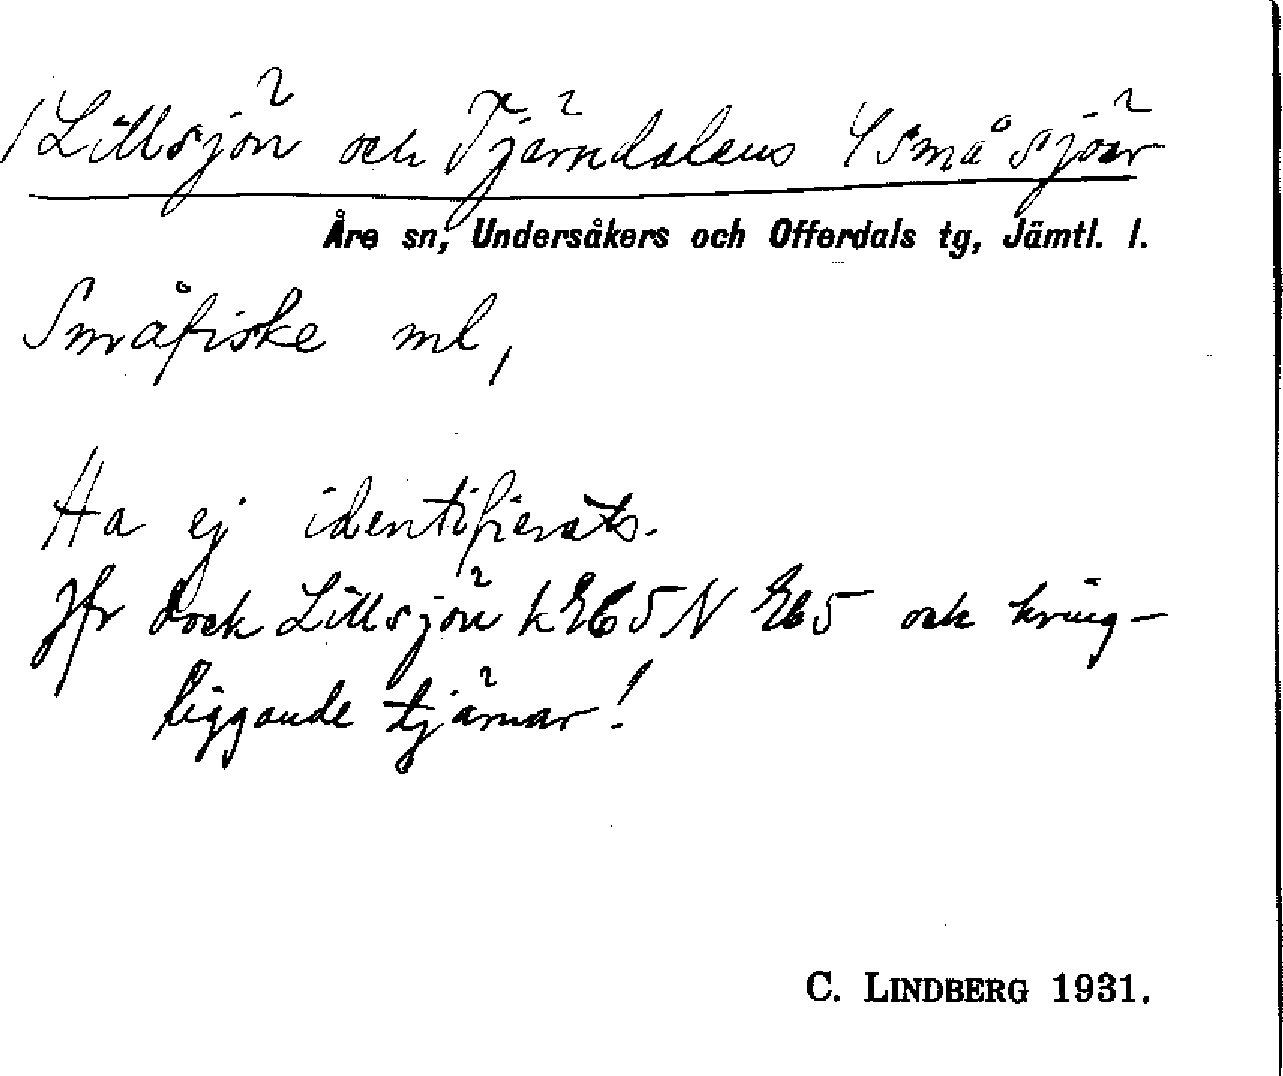 /Lillsjön och Tjärndalens 4 småsjöar
Åre sn, Undersåkers och Offerdals tg, Jämtl. l.
Småfiske ml,
Ha ej identifierats.
Jfr dock Lillsjön k 5 N och kring-
liggande tjärnar!
C. LINDBERG 1931.